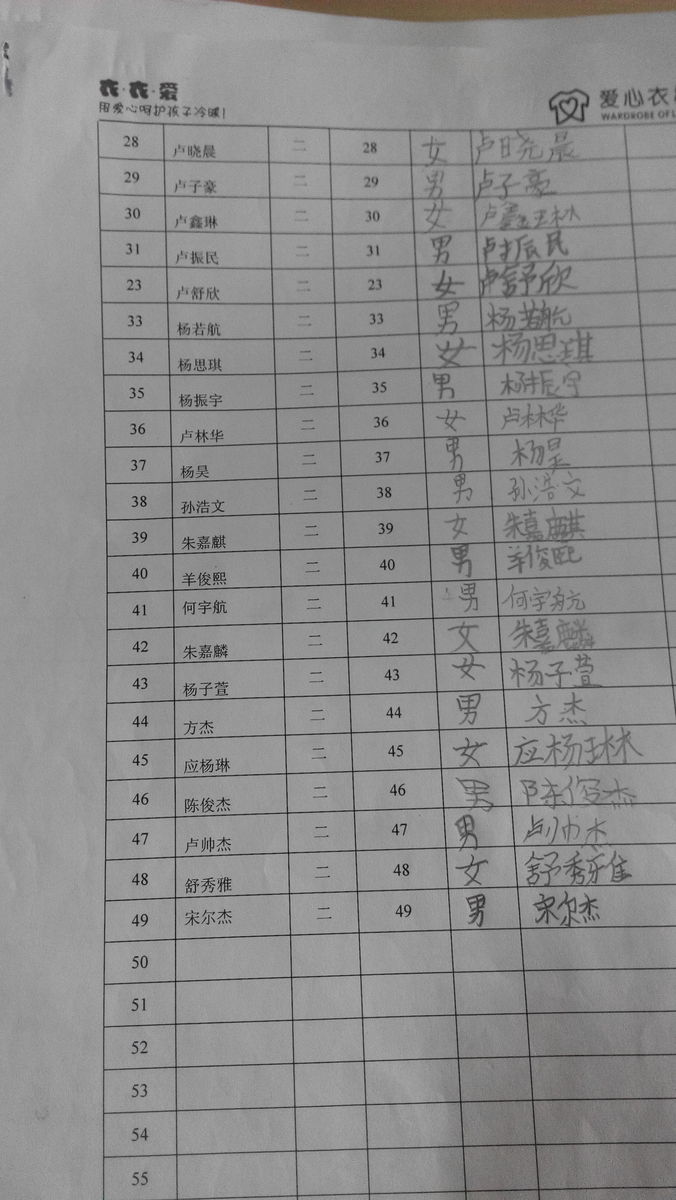 衣·衣·爱
用爱心呵护孩子冷暖!
爱心衣
WARDROBE OF L
28 卢晓晨 二 28 女 卢晓晨
29 卢子豪 二 29 男 卢子豪
30 卢鑫琳 二 30 女 卢鑫琳
31 卢振民 二 31 男 卢振民
23 卢舒欣 二 23 女 卢舒欣
33 杨若航 二 33 男 杨若航
34 杨思琪 二 34 女 杨思琪
35 杨振宇 二 35 男 杨振宇
36 卢林华 二 36 女 卢林华
37 杨昊 二 37 男 杨昊
38 孙浩文 二 38 男 孙浩文
39 朱嘉麒 二 39 女 朱嘉麒
40 羊俊熙 二 40 男 羊俊熙
41 何宇航 二 41 男 何宇航
42 朱嘉麟 二 42 女 朱嘉麟
43 杨子萱 二 43 女 杨子萱
44 方杰 二 44 男 方杰
45 应杨琳 二 45 女 应杨琳
46 陈俊杰 二 46 男 陈俊杰
47 卢帅杰 二 47 男 卢帅杰
48 舒秀雅 二 48 女 舒秀雅
49 宋尔杰 二 49 男 宋尔杰
50
51
52
53
54
55